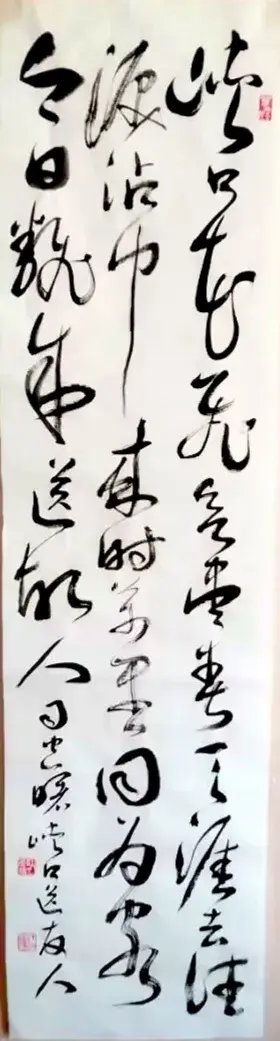 峡口花飞欲尽春天涯去住
淚沾巾来时万里同为客
今日翻成送故人
司空曙峡口送友人